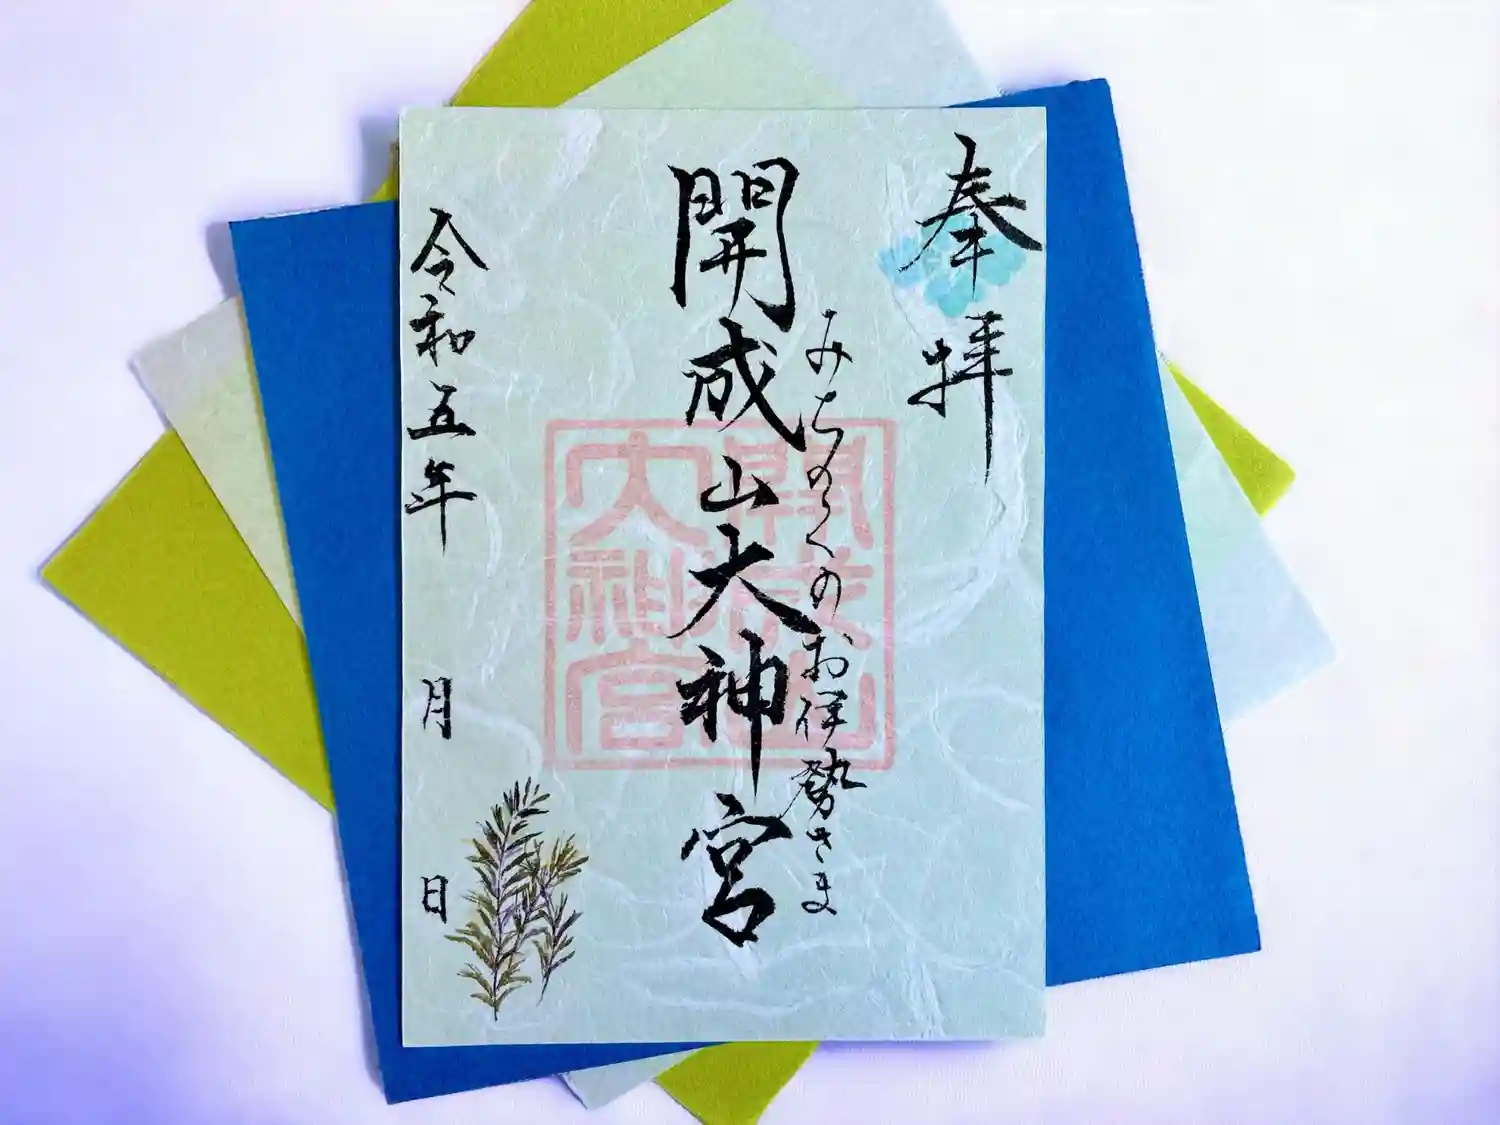 奉拝
みちのくのお伊勢さま
開成山大神宮
開成山
大神宮
令和五年 月 日